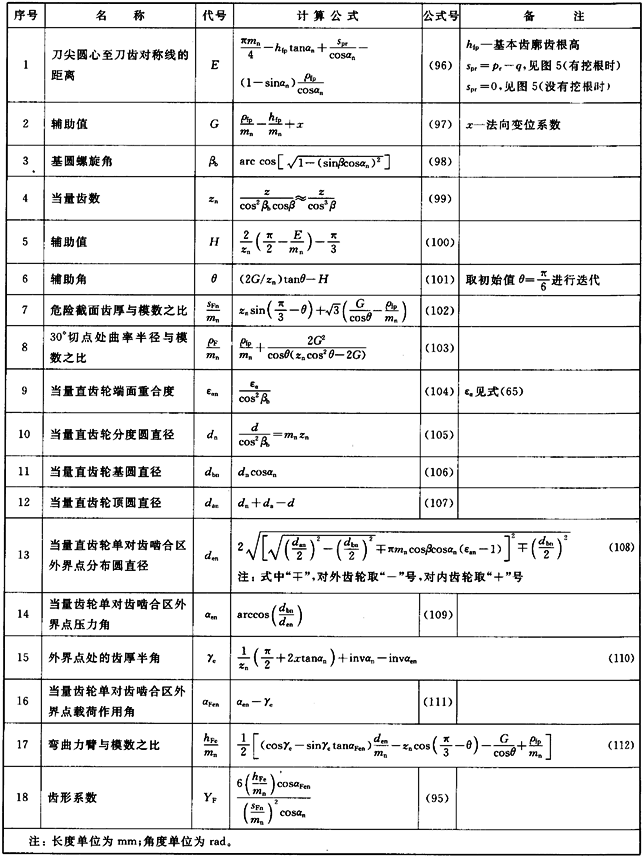 序号 名称 代号 计算公式 公式号 备注
1 刀尖圆心至刀齿对称线的距离 E πmₙ/4 − h_fp tanαₙ + s_pr/cosαₙ − (1−sinαₙ) ρ_fp/cosαₙ (96) h_fp—基本齿廓齿根高
s_pr=p_r−q,见图5(有挖根时)
s_pr=0,见图5(没有挖根时)
2 辅助值 G ρ_fp/mₙ − h_fp/mₙ + x (97) x—法向变位系数
3 基圆螺旋角 β_b arc cos[√(1−(sinβcosαₙ)²)] (98)
4 当量齿数 zₙ z/(cos²β_b cosβ) ≈ z/cos³β (99)
5 辅助值 H 2/zₙ (π/2 − E/mₙ) − π/3 (100)
6 辅助角 θ (2G/zₙ)tanθ−H (101) 取初始值θ=π/6进行迭代
7 危险截面齿厚与模数之比 s_Fn/mₙ zₙ sin(π/3−θ)+√3(G/cosθ − ρ_fp/mₙ) (102)
8 30°切点处曲率半径与模数之比 ρ_F/mₙ ρ_fp/mₙ + 2G²/(cosθ(zₙcos²θ−2G)) (103)
9 当量直齿轮端面重合度 ε_αn ε_α/cos²β_b (104) ε_α见式(65)
10 当量直齿轮分度圆直径 dₙ d/cos²β_b = mₙzₙ (105)
11 当量直齿轮基圆直径 d_bn dₙcosαₙ (106)
12 当量直齿轮顶圆直径 d_an dₙ+d_a−d (107)
13 当量直齿轮单对齿啮合区外界点分布圆直径 d_en 2√([√((d_an/2)²−(d_bn/2)²)∓πmₙcosβcosαₙ(ε_αn−1)]²∓(d_bn/2)²) (108)
注:式中“∓”,对外齿轮取“−”号,对内齿轮取“+”号
14 当量齿轮单对齿啮合区外界点压力角 α_en arccos(d_bn/d_en) (109)
15 外界点处的齿厚半角 γ_e 1/zₙ (π/2+2xtanαₙ)+invαₙ−invα_en (110)
16 当量齿轮单对齿啮合区外界点载荷作用角 α_Fen α_en−γ_e (111)
17 弯曲力臂与模数之比 h_Fe/mₙ 1/2[(cosγ_e−sinγ_e tanα_Fen) d_en/mₙ − zₙcos(π/3−θ) − G/cosθ + ρ_fp/mₙ] (112)
18 齿形系数 Y_F 6(h_Fe/mₙ)cosα_Fen / ((s_Fn/mₙ)² cosαₙ) (95)
注:长度单位为mm;角度单位为rad。